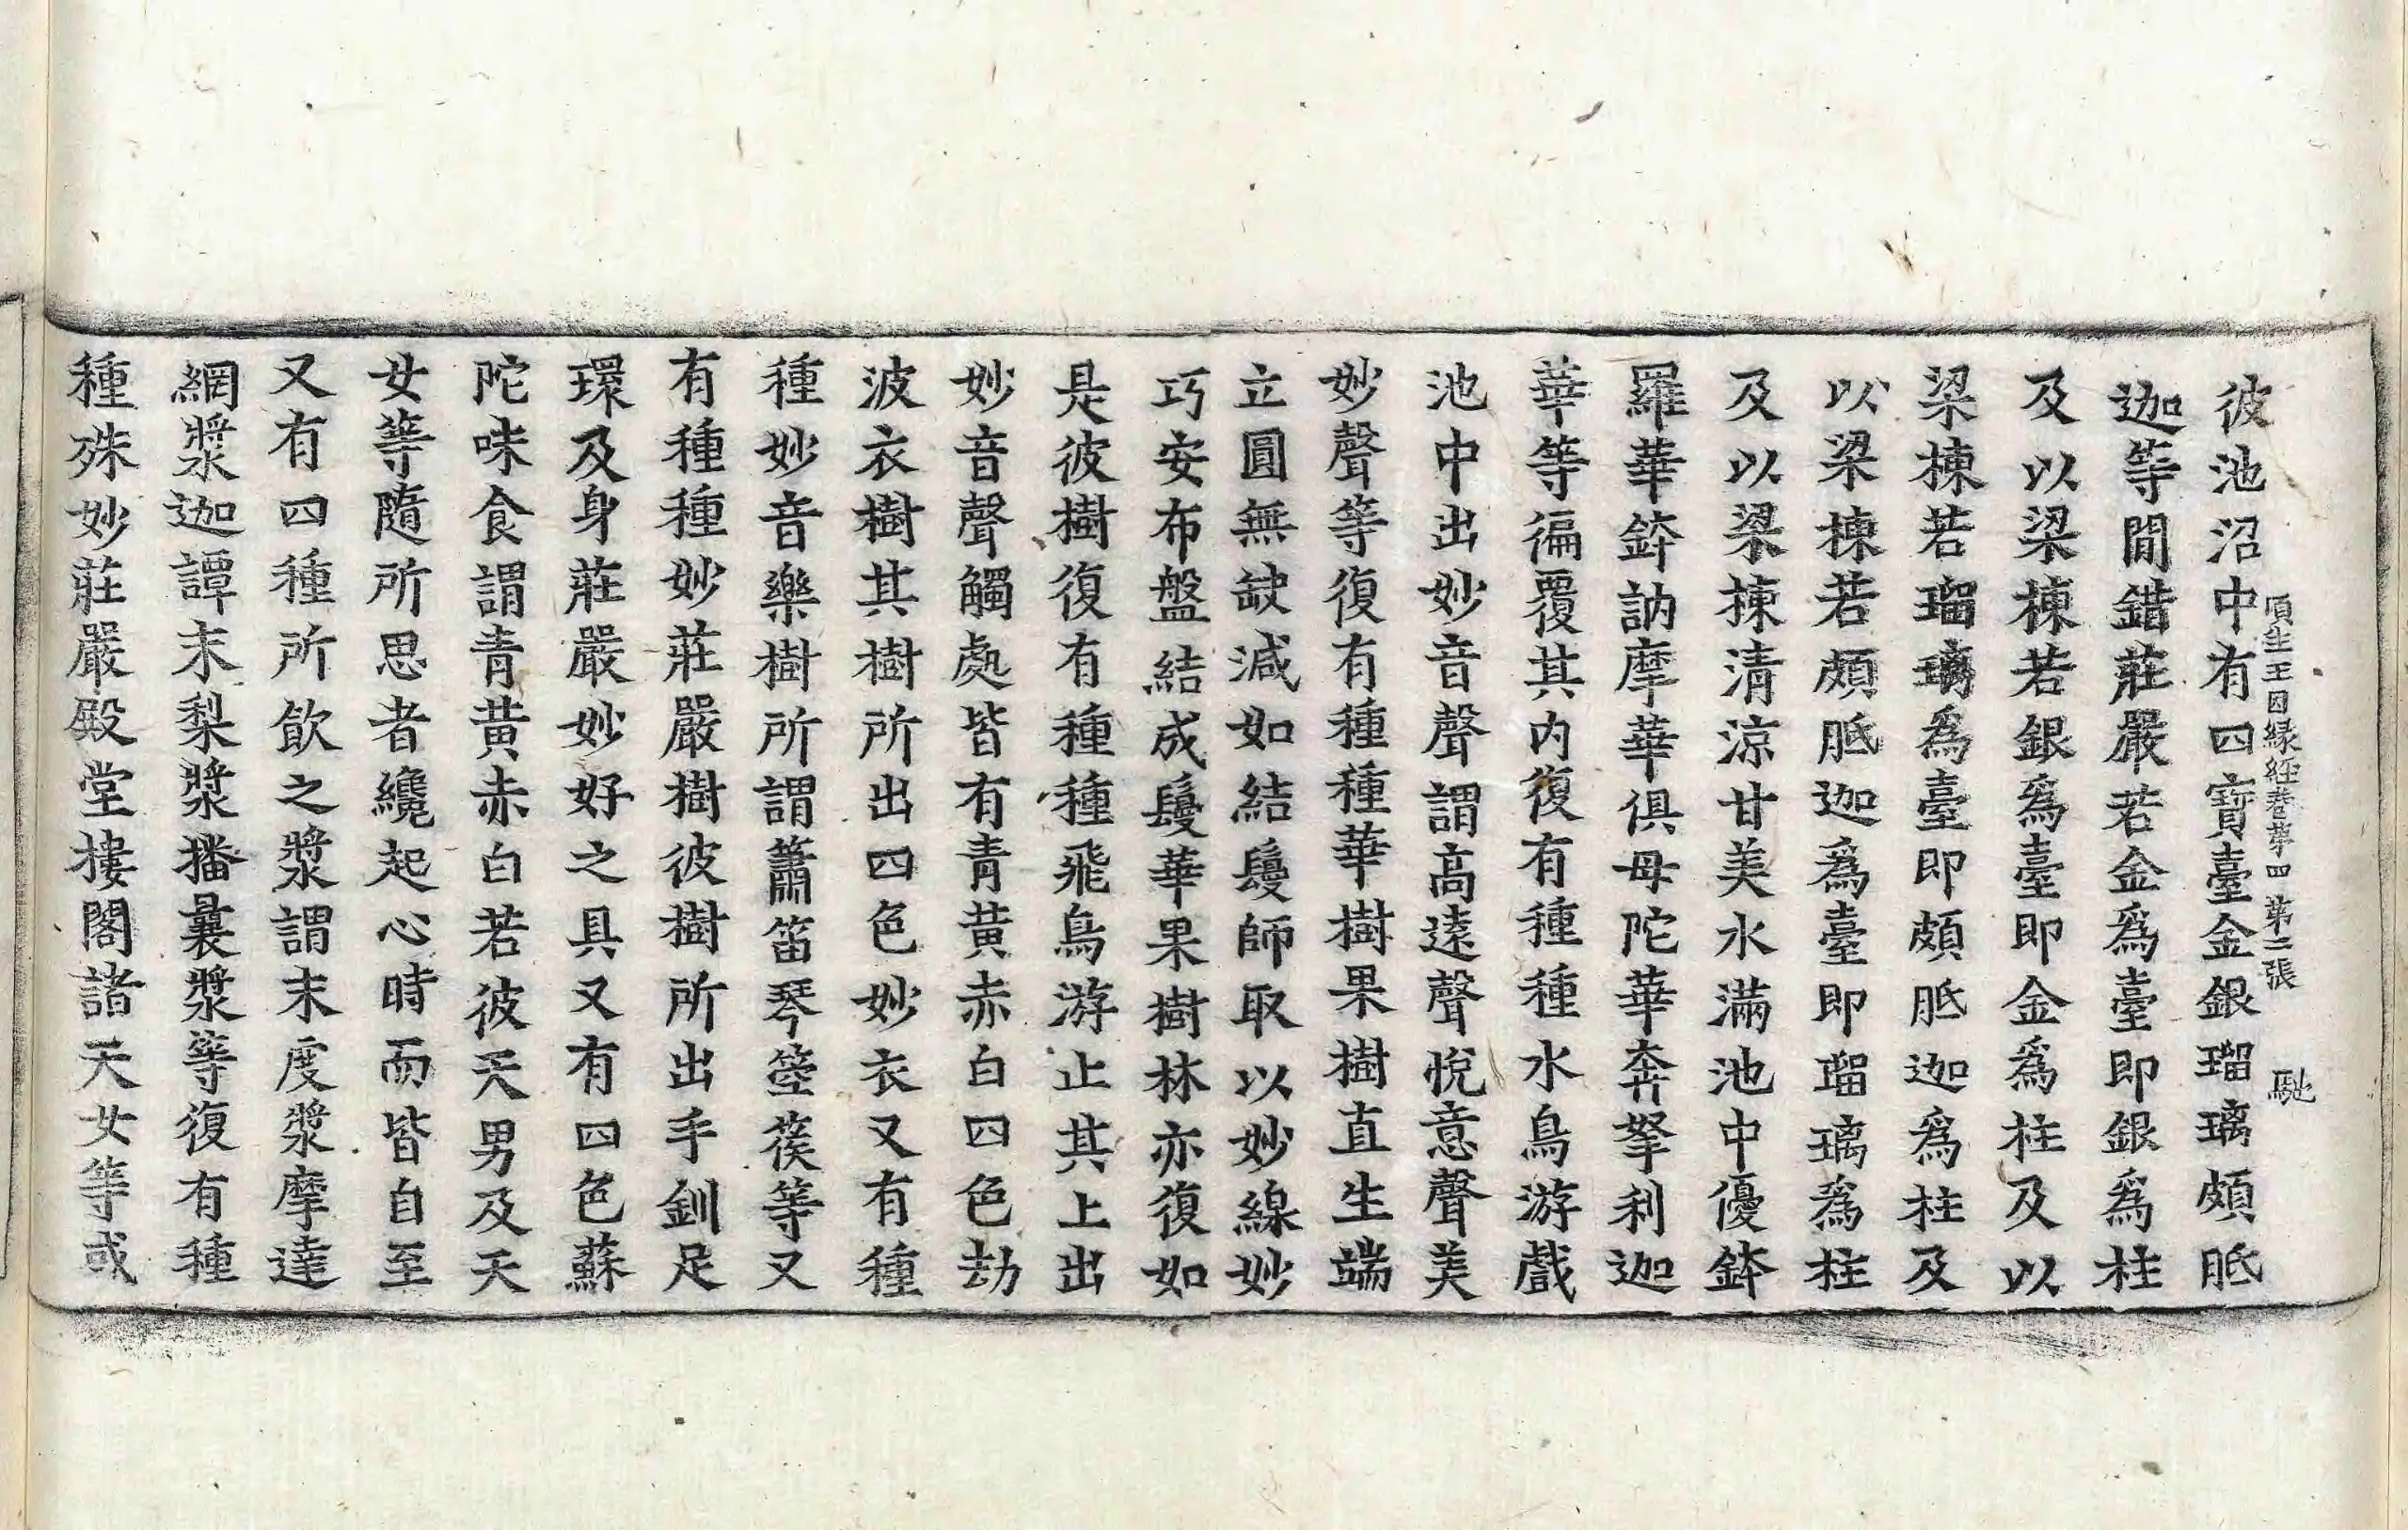 頂生王因縁経巻第四 第二張 馳
彼池沼中有四寶臺金銀瑠璃頗胝
迦等間錯莊嚴若金爲臺即銀爲柱
及以梁棟若銀爲臺即金爲柱及以
梁棟若瑠璃爲臺即頗胝迦爲柱及
以梁棟若頗胝迦爲臺即瑠璃爲柱
及以梁棟清涼甘美水滿池中優鉢
羅華鉢訥摩華俱母陀華奔拏利迦
華等徧覆其内復有種種水鳥游戲
池中出妙音聲謂高遠聲悅意聲美
妙聲等復有種種華樹果樹直生端
立圓無缺減如結鬘師取以妙線妙
巧安布盤結成鬘華果樹林亦復如
是彼樹復有種種飛鳥游止其上出
妙音聲觸處皆有青黃赤白四色劫
波衣樹其樹所出四色妙衣又有種
種妙音樂樹所謂簫笛琴箜篌等又
有種種妙莊嚴樹彼樹所出手釧足
環及身莊嚴妙好之具又有四色蘇
陀味食謂青黃赤白若彼天男及天
女等隨所思者纔起心時而皆自至
又有四種所飲之漿謂末度漿摩達
網漿迦譚末梨漿播曩漿等復有種
種殊妙莊嚴殿堂樓閣諸天女等或